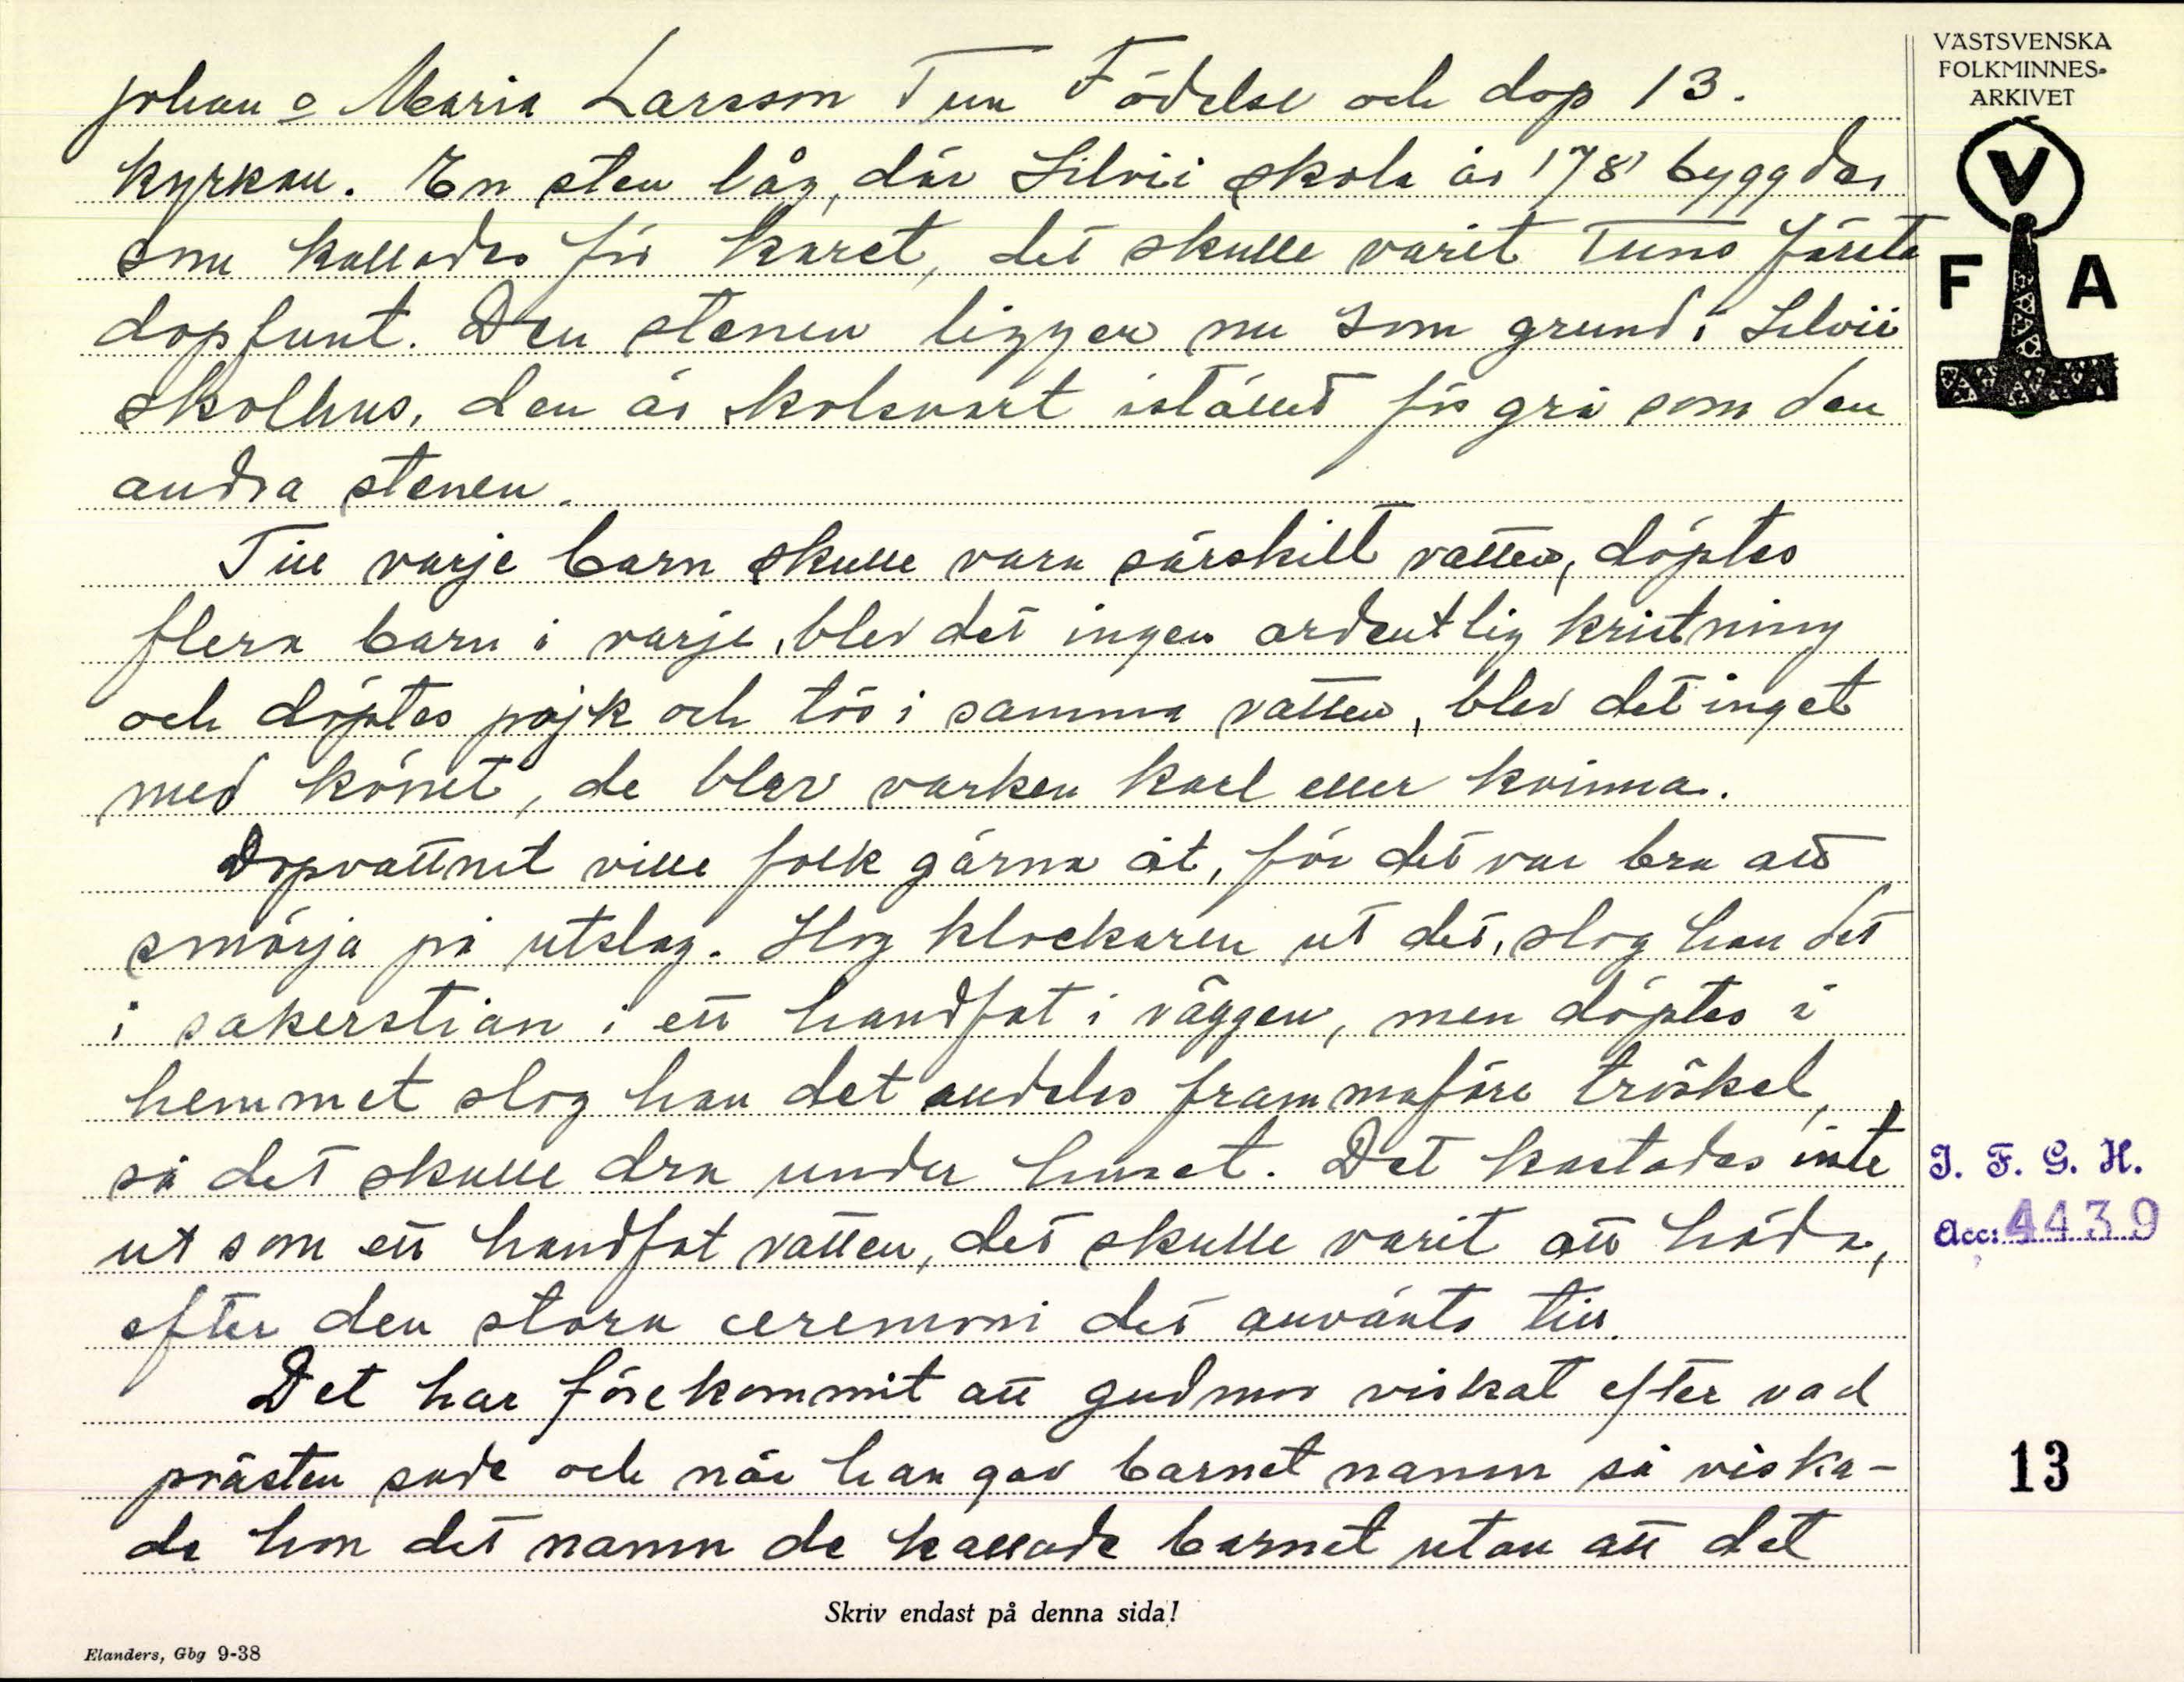 VÄSTSVENSKA
FOLKMINNES-
ARKIVET
V
F A
Johan o Maria Larsson Tun Födelse och dop 13.
kyrkan. En sten låg, där Silvii skola år 1781 byggdes
som kallades för karet, det skulle varit Tuns första
dopfunt. Den stenen ligger nu som grund i Silvii
skolhus, den är kolsvart istället för grå som den
andra stenen.
Till varje barn skulle vara särskilt vatten, döptes
flera barn i varje, blev det ingen ordentlig kristning
och döptes pojk och tös i samma vatten, blev det inget
med könet, de blev varken karl eller kvinna.
Dopvattnet ville folk gärna åt, för det var bra att
smörja på utslag. Slog klockaren ut det, slog han det
i sakerstian i ett handfat i väggen, men döptes i
hemmet slog han det alldeles frammaföre tröskel,
så det skulle dra under huset. Det kastades inte
ut som ett handfat vatten, det skulle varit att häda,
efter den stora ceremoni det använts till.
Det har förekommit att gudmor viskat efter vad
prästen sade och när han gav barnet namn så viska-
de hon det namn de kallade barnet utan att det
I. F. G. H.
Acc: 4439
13
Skriv endast på denna sida!
Elanders, Gbg 9-38